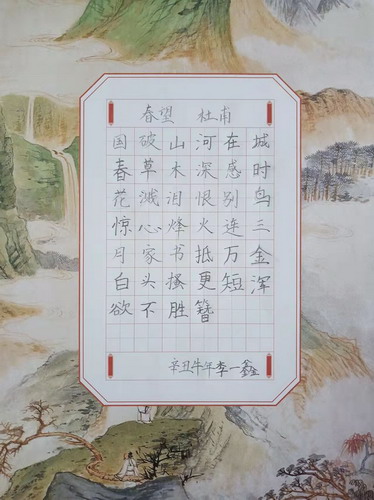 春望 杜甫
国破山河在城
春草木深感时
花溅泪恨别鸟
惊心烽火连三
月家书抵万金
白头搔更短浑
欲不胜簪
辛丑牛年李一鑫